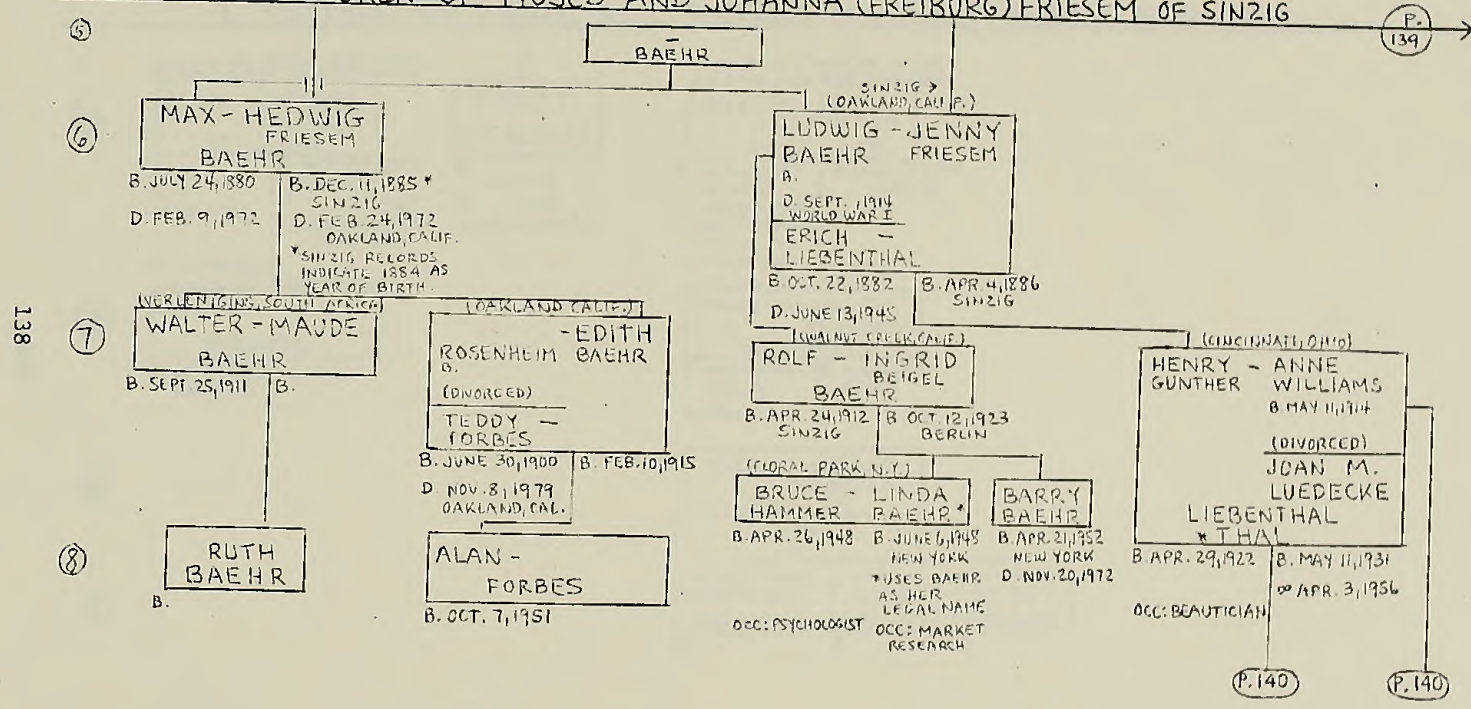 OF MOSES AND JOHANNA (FREIBURG) FRIESEM OF SINZIG
P. 139
5
BAEHR
6
MAX - HEDWIG
FRIESEM
BAEHR
B. JULY 24, 1880
D. FEB. 9, 1972
B. DEC. 11, 1885 *
SINZIG
D. FEB. 24, 1972
OAKLAND, CALIF.
*SINZIG RECORDS
INDICATE 1884 AS
YEAR OF BIRTH.
SINZIG >
(OAKLAND, CALIF.)
LUDWIG - JENNY
BAEHR FRIESEM
B.
D. SEPT. , 1914
WORLD WAR I
ERICH -
LIEBENTHAL
B. OCT. 22, 1882
D. JUNE 13, 1945
B. APR. 4, 1886
SINZIG
138
7
(VERLENIGING, SOUTH AFRICA)
WALTER - MAUDE
BAEHR
B. SEPT. 25, 1911
B.
(OAKLAND CALIF.)
- EDITH
ROSENHEIM BAEHR
B.
(DIVORCED)
TEDDY -
FORBES
B. JUNE 30, 1900
D. NOV. 8, 1979
OAKLAND, CAL.
B. FEB. 10, 1915
(WALNUT CREEK, CALIF.)
ROLF - INGRID
BEIGEL
BAEHR
B. APR. 24, 1912
SINZIG
B OCT. 12, 1923
BERLIN
(CINCINNATI, OHIO)
HENRY - ANNE
GUNTHER WILLIAMS
B. MAY 11, 1914
(DIVORCED)
JOAN M.
LUEDECKE
LIEBENTHAL
* THAL
B. APR. 29, 1922
OCC: BEAUTICIAN
B. MAY 11, 1931
∞ APR. 3, 1956
8
RUTH
BAEHR
B.
ALAN -
FORBES
B. OCT. 7, 1951
(FLORAL PARK, N.Y.)
BRUCE - LINDA
HAMMER BAEHR *
B. APR. 26, 1948
OCC: PSYCHOLOGIST
B. JUNE 6, 1948
NEW YORK
*USES BAEHR
AS HER
LEGAL NAME
OCC: MARKET
RESEARCH
BARRY
BAEHR
B. APR. 21, 1952
NEW YORK
D. NOV. 20, 1972
P. 140
P. 140